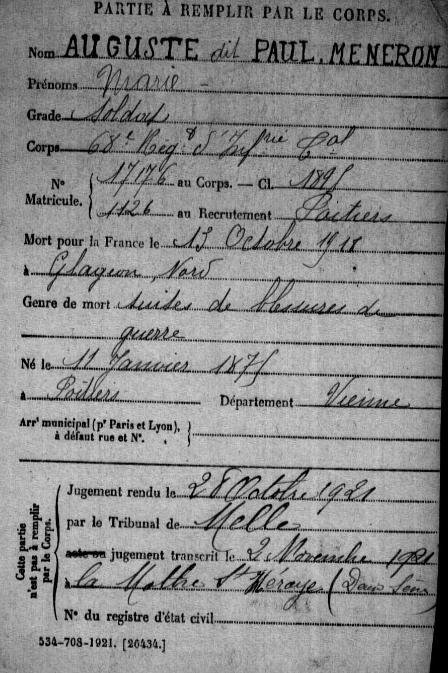 PARTIE À REMPLIR PAR LE CORPS.
Nom AUGUSTE dit PAUL, MENERON
Prénoms Marie
Grade Soldat
Corps 68e Reg t d'Inf rie Cal
N° Matricule. 17176 au Corps. — Cl. 1895
1126 au Recrutement Poitiers
Mort pour la France le 15 Octobre 1918
à Glageon, Nord
Genre de mort suites de blessures de
guerre
Né le 11 Janvier 1875
à Poitiers Département Vienne
Arrt municipal (pr Paris et Lyon), à défaut rue et N°.
Cette partie n'est pas à remplir par le Corps.
Jugement rendu le 28 Octobre 1921
par le Tribunal de Melle
acte ou jugement transcrit le 2 Novembre 1921
à la Mothe St Héraye (Deux Sèvres
N° du registre d'état civil
534-708-1921. [26434.]